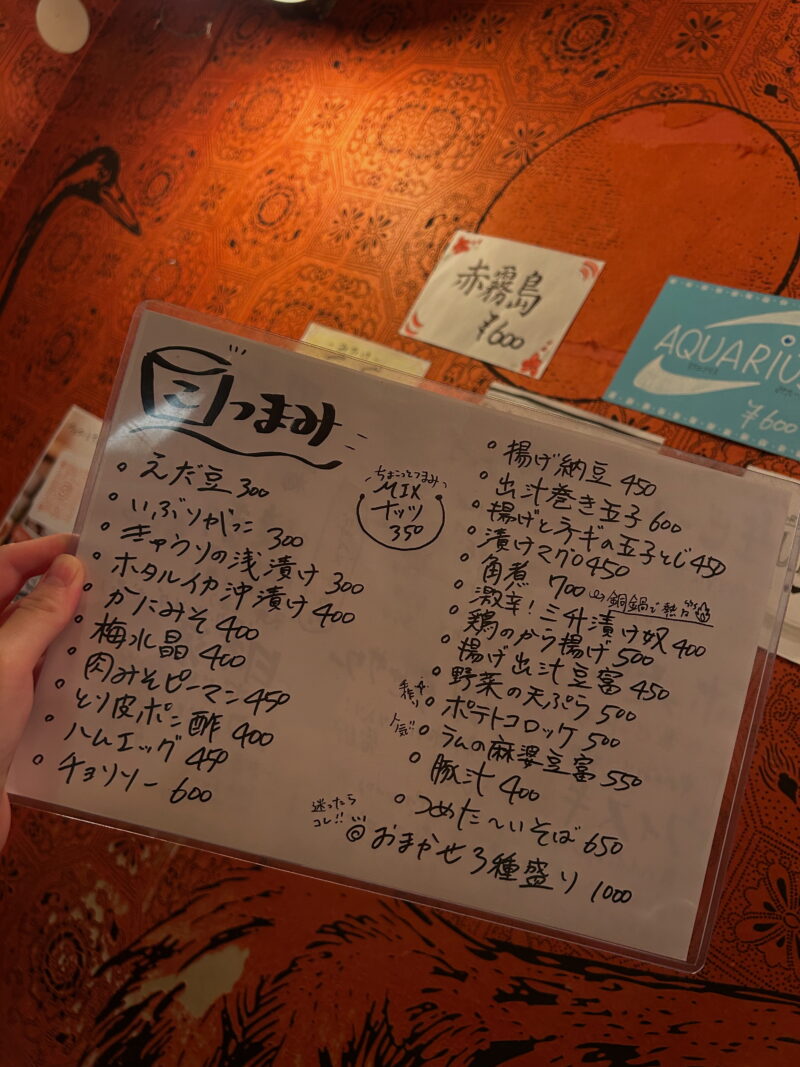 赤霧島
¥600
AQUARIU
¥600
おつまみ
えだ豆 300
いぶりがっこ 300
きゅうりの浅漬け 300
ホタルイカ沖漬け 400
かにみそ 400
梅水晶 400
肉みそピーマン 450
とり皮ポン酢 400
ハムエッグ 450
チョリソー 600
ちょこっとつまみ
MIX
ナッツ
350
揚げ納豆 450
出汁巻き玉子 600
揚げとネギの玉子とじ 450
漬けマグロ 450
角煮 700 銅鍋で熱々
激辛!三升漬け奴 400
鶏のから揚げ 500
揚げ出汁豆富 450
野菜の天ぷら 500
手作り ポテトコロッケ 500
人気!! ラムの麻婆豆富 550
豚汁 400
つめた〜いそば 650
迷ったら
コレ!!
おまかせ3種盛り 1000